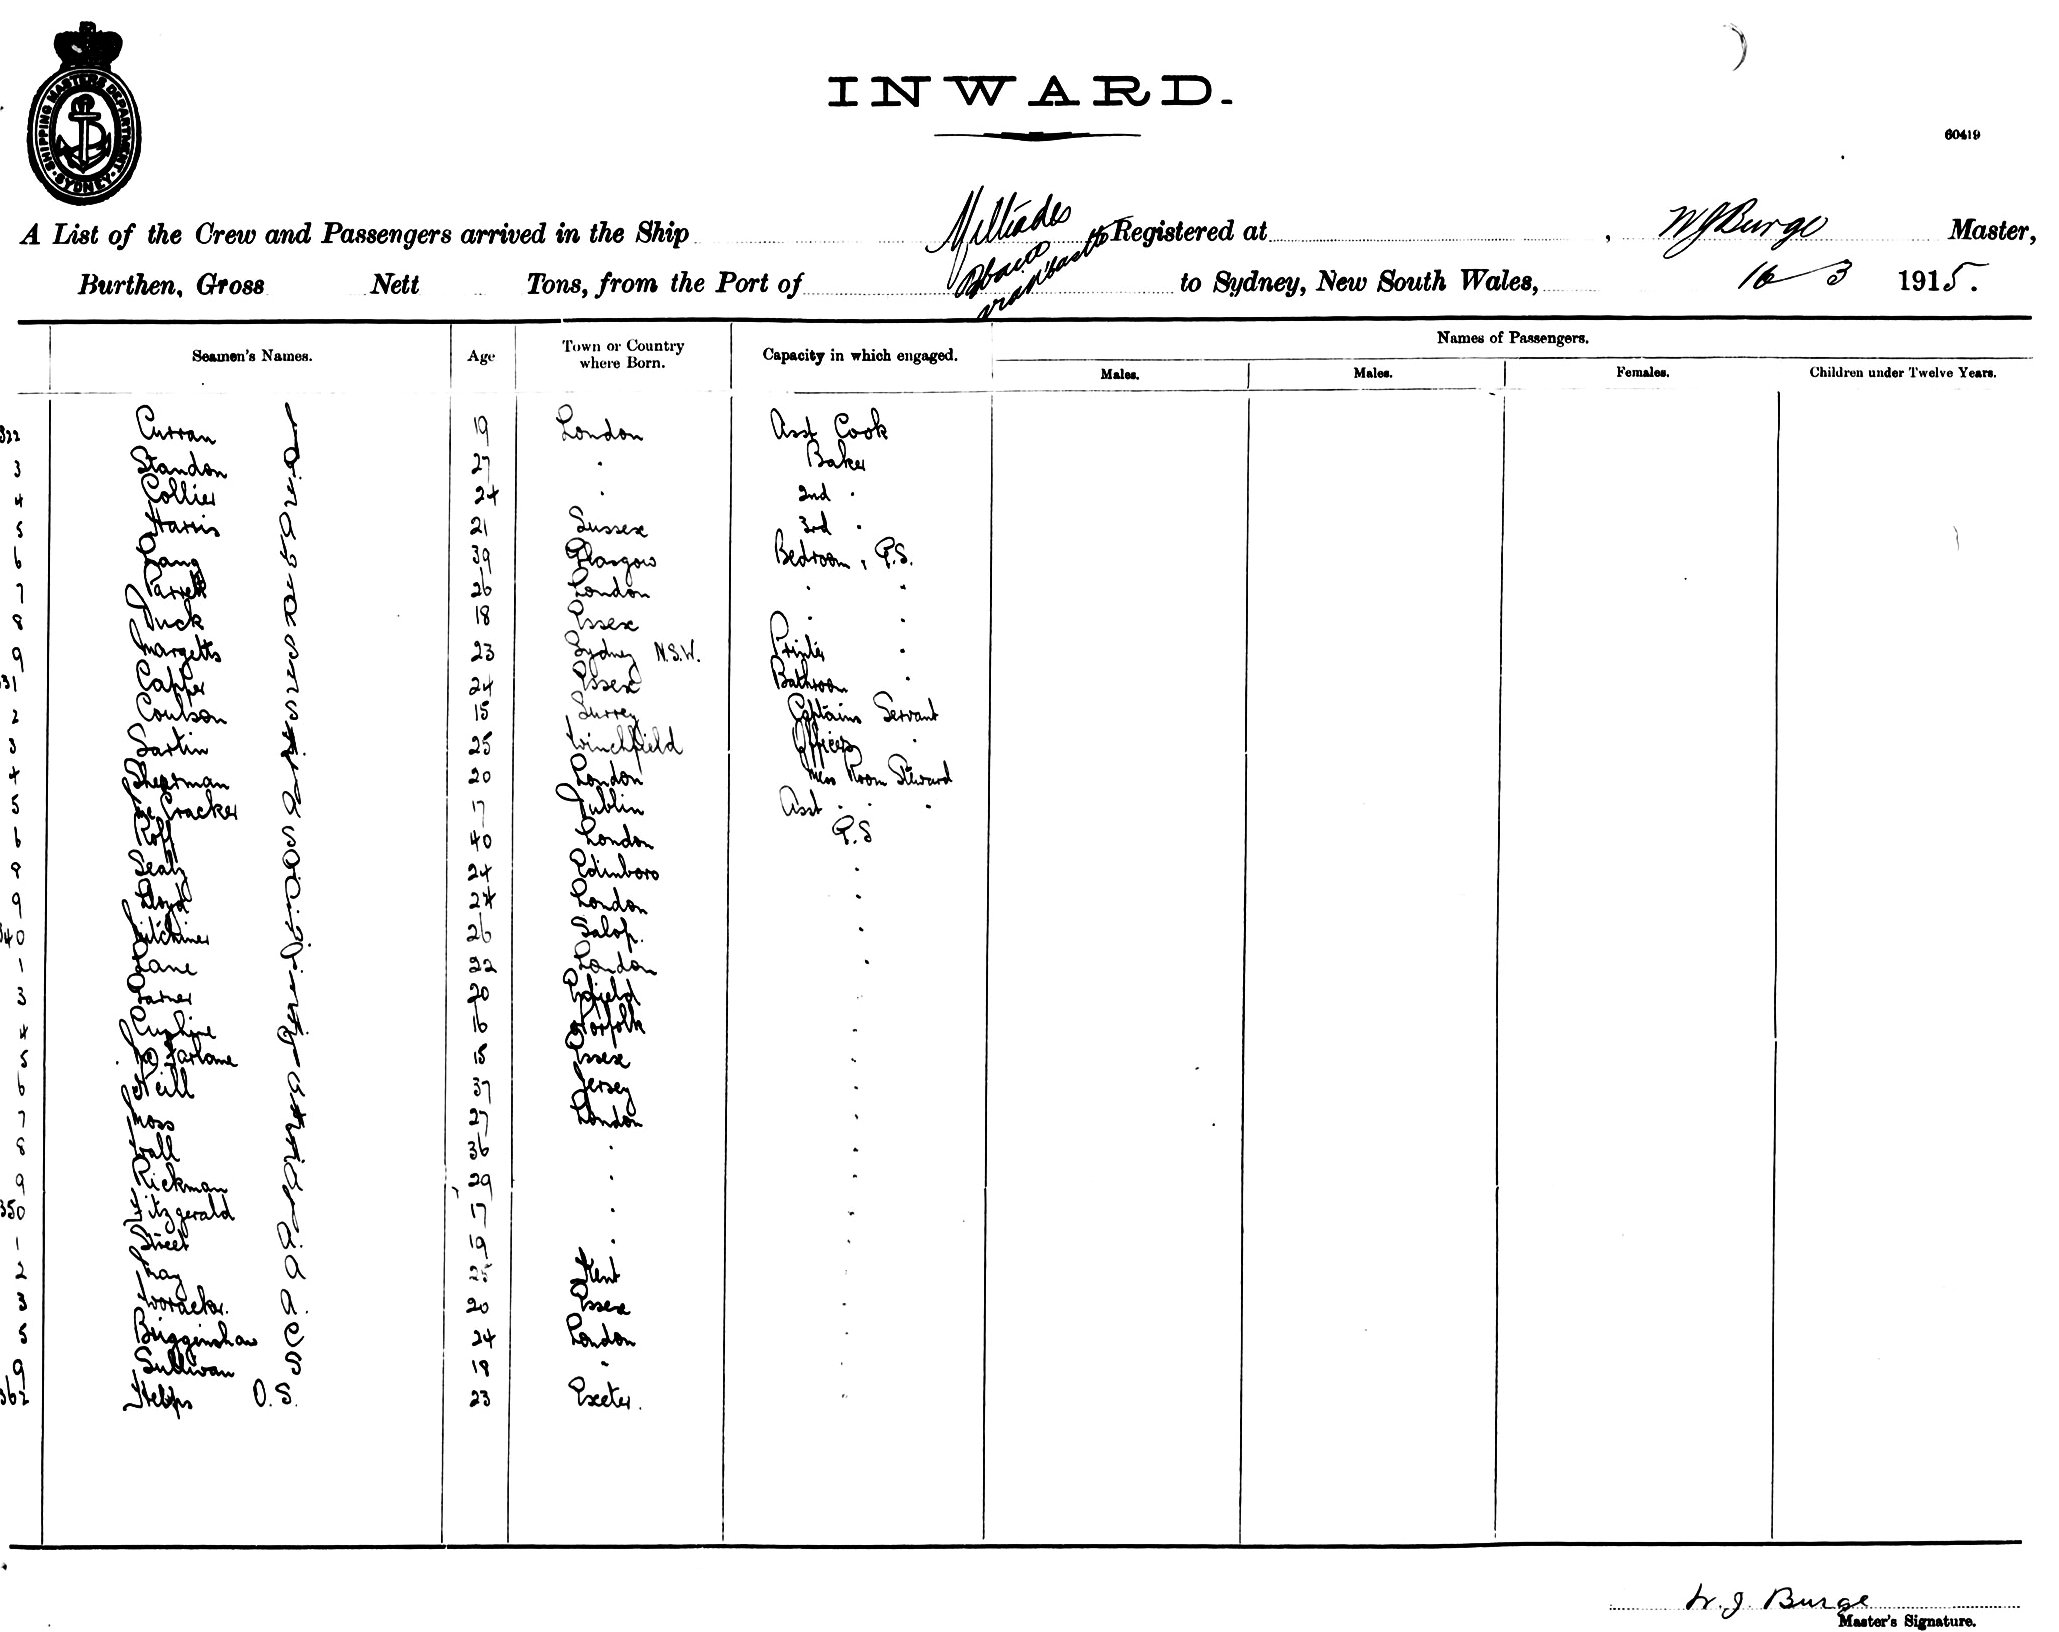 SHIPPING MASTERS DEPARTMENT. SYDNEY.
INWARD.
60419
A List of the Crew and Passengers arrived in the Ship Miltiades Registered at , W J Burge Master,
Burthen, Gross Nett Tons, from the Port of to Sydney, New South Wales, 16 3 1915.
Seamen's Names. Age Town or Country where Born. Capacity in which engaged. Names of Passengers.
Males. Males. Females. Children under Twelve Years.
322 Curran 19 London Asst Cook
3 Standon 27 " Baker
4 Collier 24 " 2nd "
5 Harris 21 Sussex 3rd "
6 Lang 39 Glasgow Bedroom, G.S.
7 Parrett 26 London " "
8 Duck 18 Essex " "
9 Margetts 23 Sydney N.S.W. Printer "
331 Capper 24 Essex Bathroom "
2 Coulson 15 Surrey Captains Servant
3 Sartin 25 Winchfield Officers "
4 Shearman 20 London Mess Room Steward
5 Mc Cracker 17 Dublin Asst " " "
6 Roff 40 London G.S
8 Sealy 24 Edinboro "
9 Lloyd 24 London "
340 Kitchiner 26 Salop. "
1 Lane 22 London "
3 Garner 20 Enfield "
4 Cushine 16 Norfolk "
5 Mc Farlane 18 Essex "
6 Neill 37 Jersey "
7 Moss 27 London "
8 Wall 36 " "
9 Rickman 29 " "
350 Fitzgerald 17 " "
1 Street 19 " "
2 May 25 Kent "
3 Woracker. 20 Essex "
5 Brigginshaw C 24 London "
9 Sullivan S 18 " "
362 Stebbs O.S. 23 Exeter. "
W. J. Burge
Master's Signature.